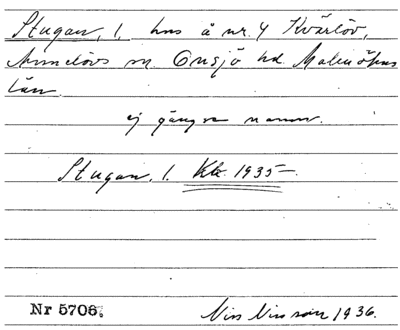 Stugan, l. hus å nr 4 Kvärlöv,
Annelövs sn. Onsjö hd. Malmöhus
län.
ej gängse namn.
Stugan, l. Kbl. 1935
Nr 5706.
Nils Nilsson 1936.